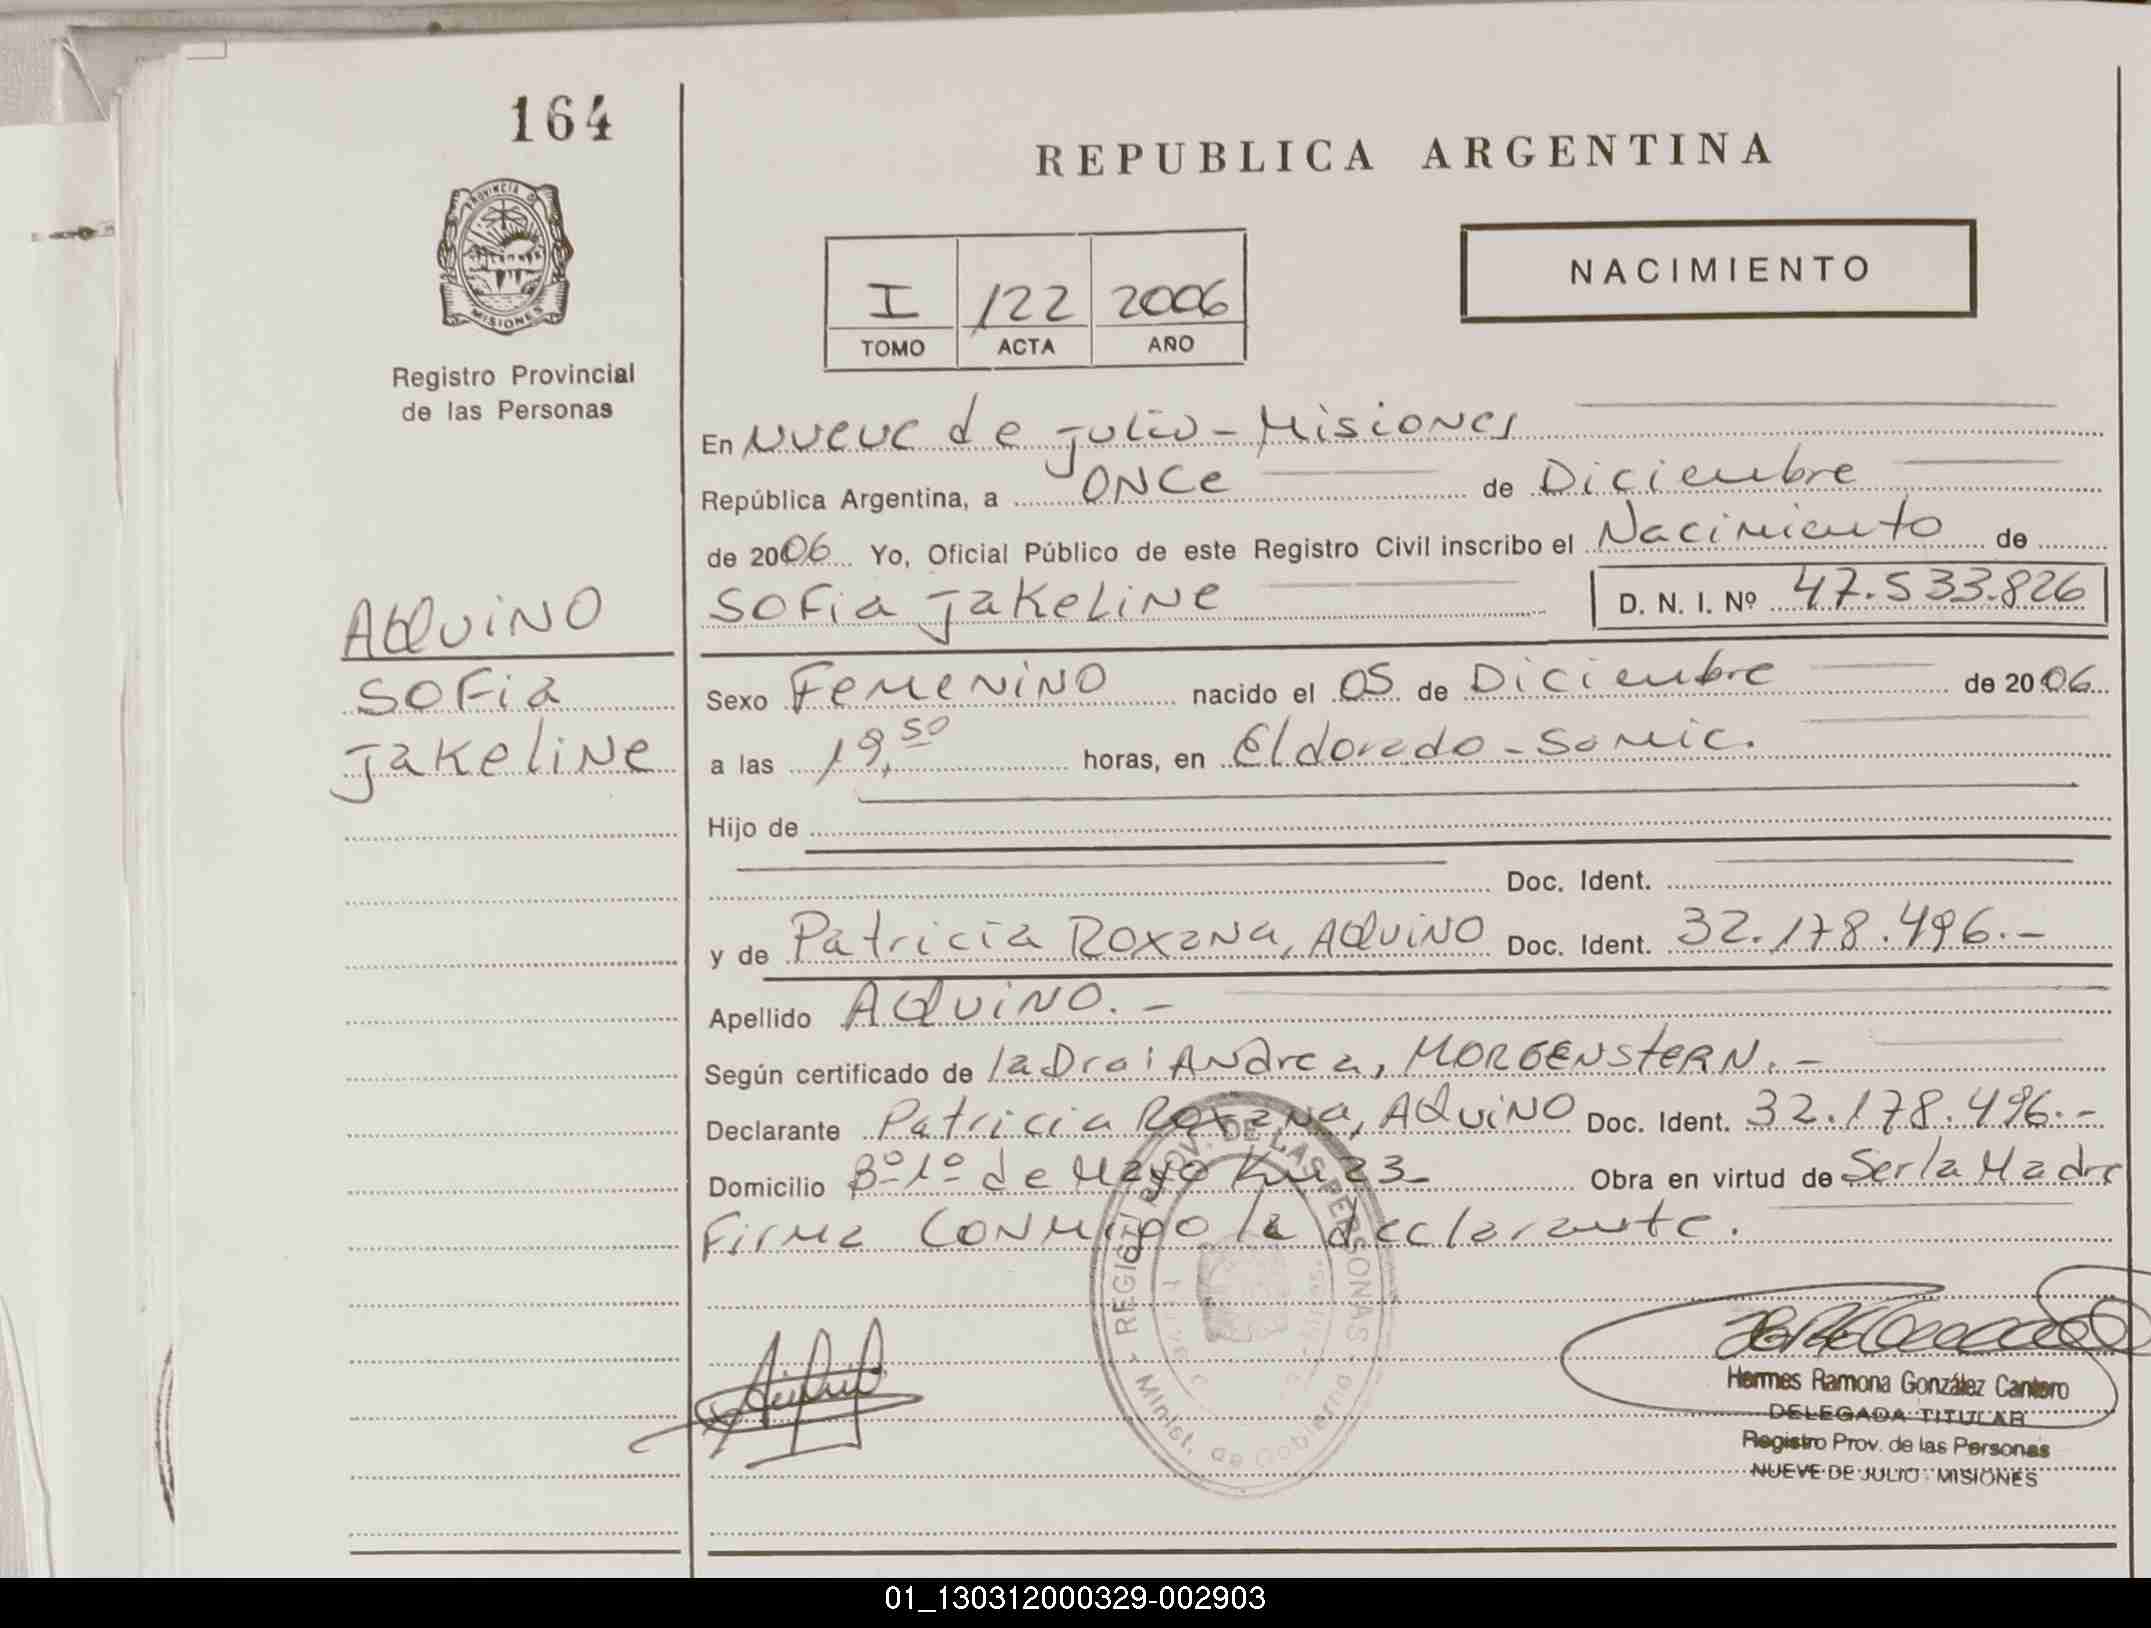 164
REPUBLICA ARGENTINA
PROVINCIA DE
MISIONES
NACIMIENTO
I /22 2006
TOMO ACTA AÑO
Registro Provincial
de las Personas
En Nueve de Julio - Misiones
República Argentina, a ONCE de Diciembre
de 2006 Yo, Oficial Público de este Registro Civil inscribo el Nacimiento de
SOFIA JAKELINE D. N. I. Nº 47.533.826
AQUINO
SOFIA
JAKELINE
Sexo FEMENINO nacido el 05 de Diciembre de 2006
a las 19,50 horas, en Eldorado - Samic.
Hijo de
Doc. Ident.
y de Patricia Roxana, AQUINO Doc. Ident. 32.178.496.-
Apellido AQUINO.-
Según certificado de la Dra: Andrea, MORGENSTERN.-
Declarante Patricia Roxana, AQUINO Doc. Ident. 32.178.496.-
Domicilio Bº 1º de Mayo Km 23- Obra en virtud de Ser la Madre
Firma conmigo la declarante.
REGIST. PROV. DE LAS PERSONAS
Minist. de Gobierno
Hermes Ramona González Cantero
DELEGADA TITULAR
Registro Prov. de las Personas
NUEVE DE JULIO - MISIONES
01_130312000329-002903